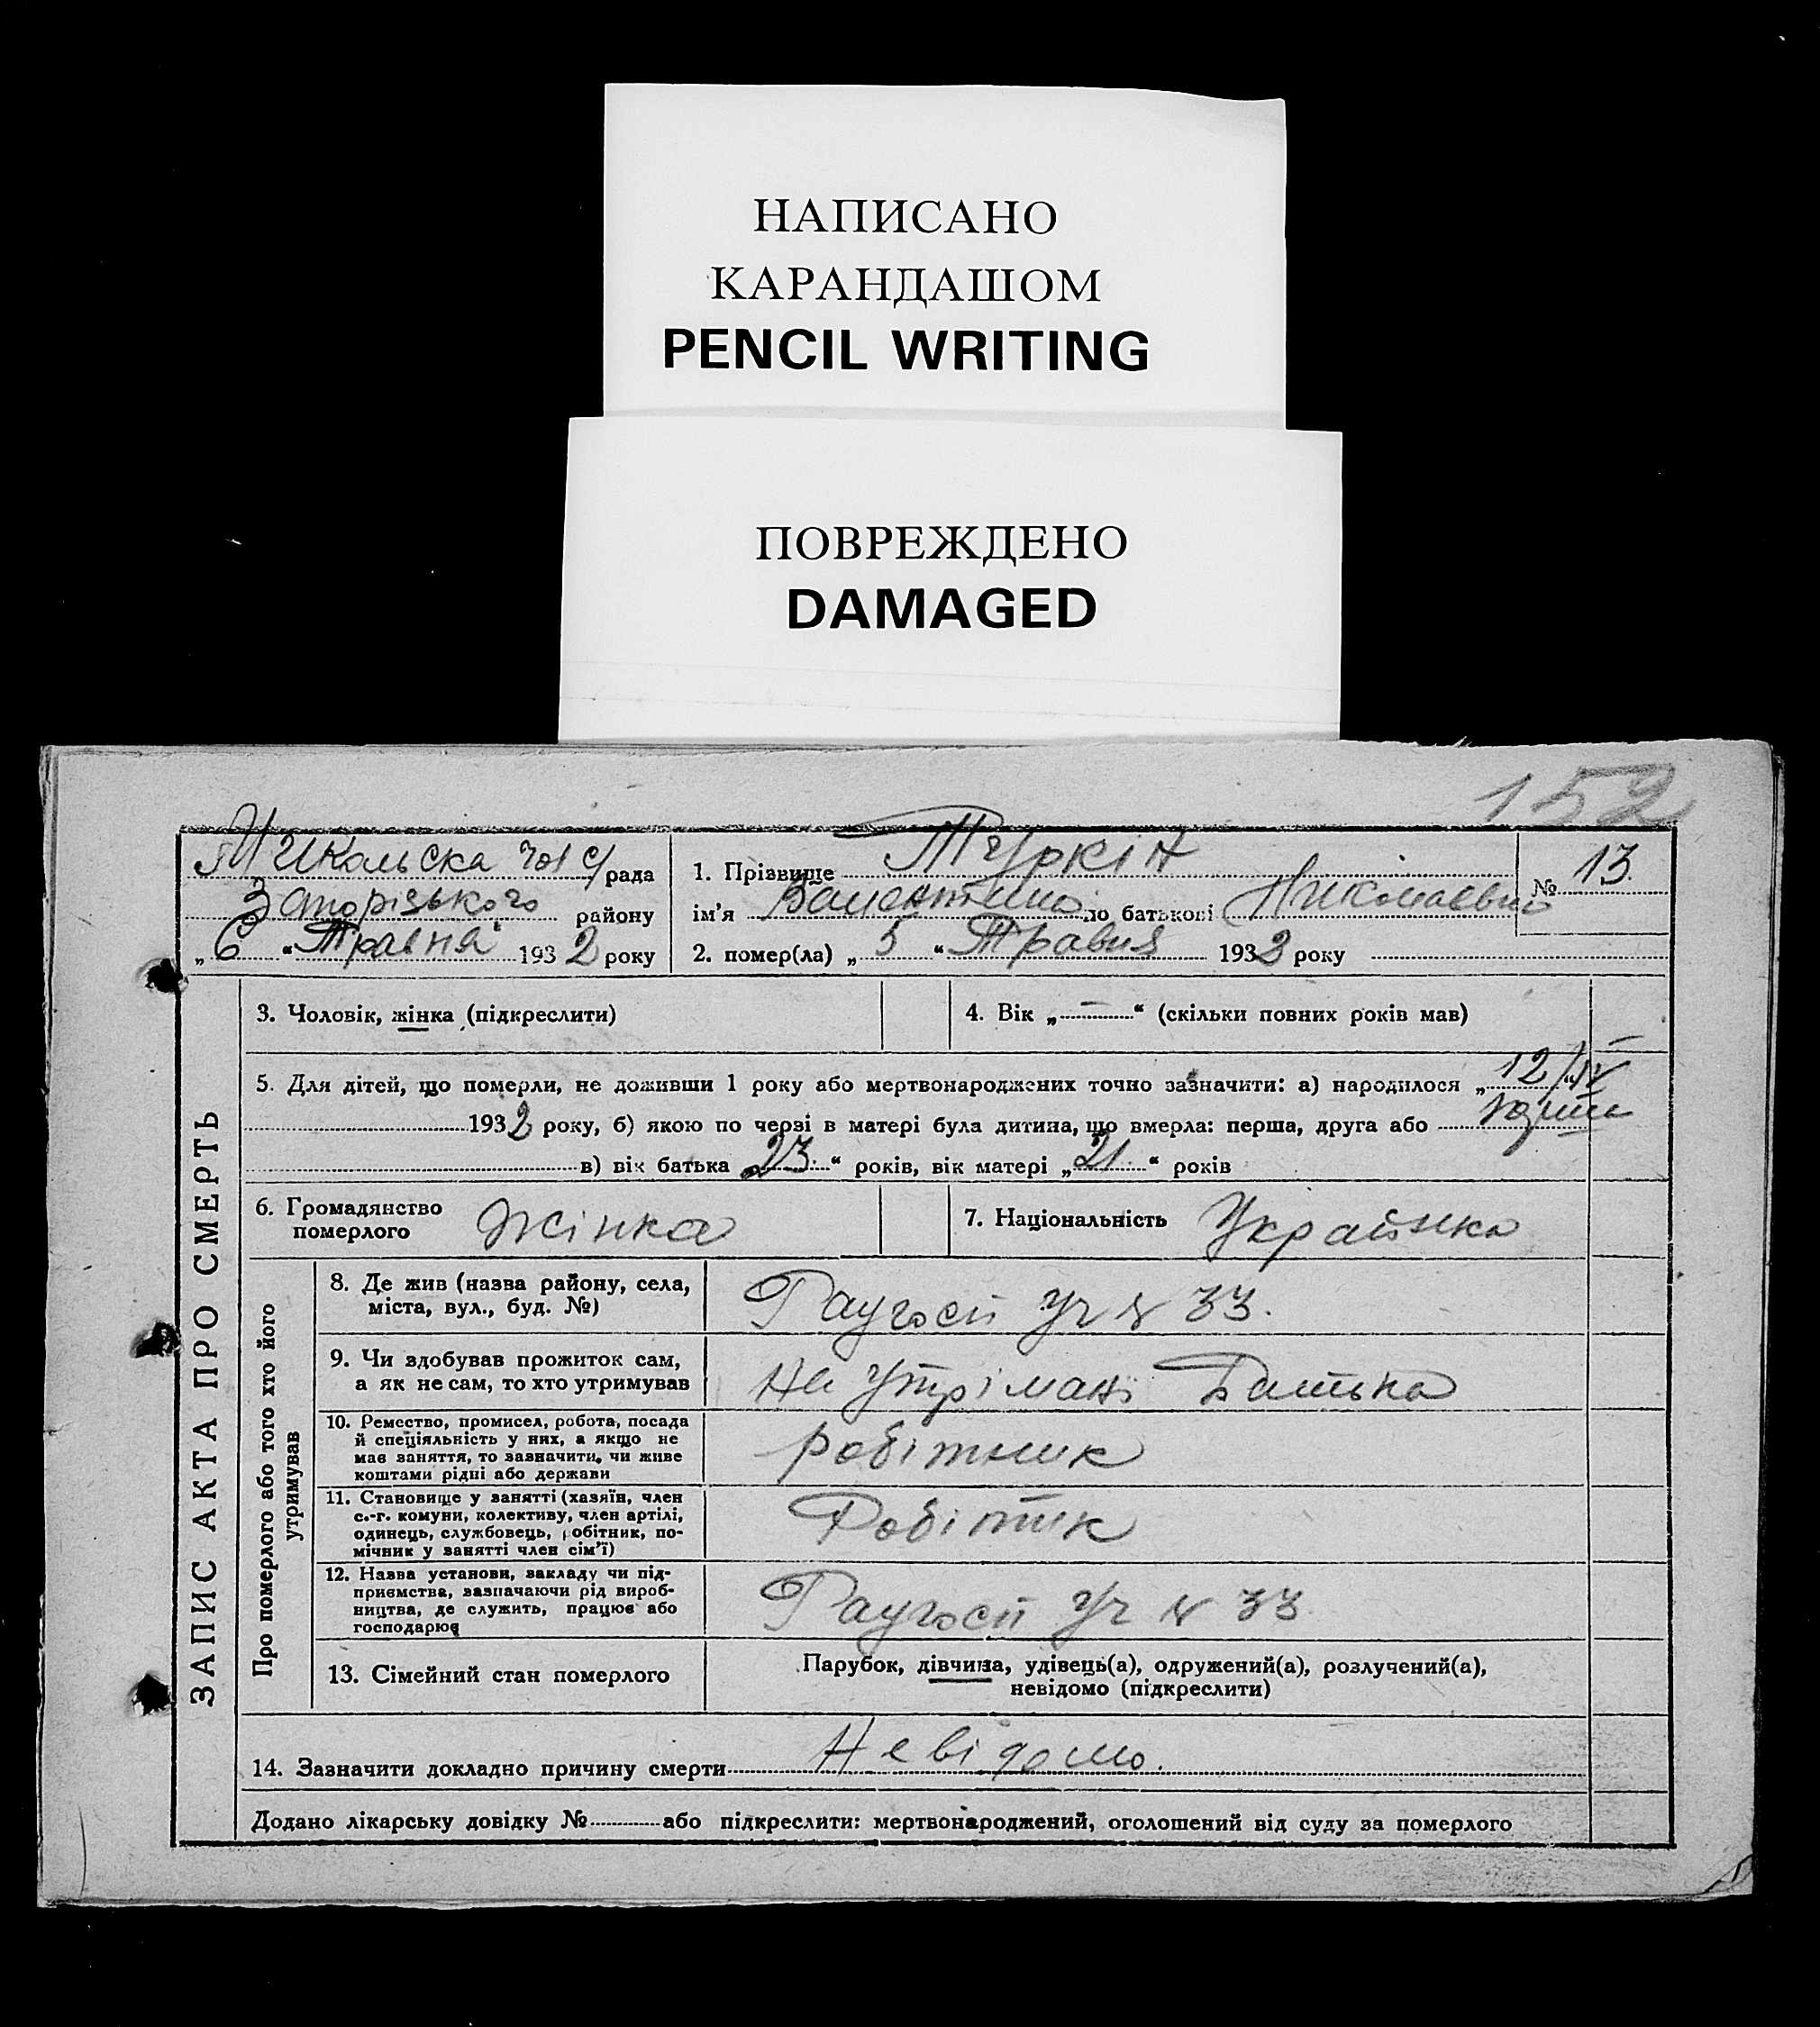 НАПИСАНО
КАРАНДАШОМ
PENCIL WRITING
ПОВРЕЖДЕНО
DAMAGED
152
с/рада
Запорізького району
„ 6 “ Травня 1932 року
1. Прізвище Туркін
№ 13.
ім'я Валентина по батькові Николаевна
2. помер(ла) „ 5 “ Травня 1932 року
ЗАПИС АКТА ПРО СМЕРТЬ
3. Чоловік, жінка (підкреслити)
4. Вік „ — “ (скільки повних років мав)
5. Для дітей, що померли, не доживши 1 року або мертвонароджених точно зазначити: а) народилося „ 12/IV
1932 року, б) якою по черзі в матері була дитина, що вмерла: перша, друга або
в) вік батька „ 23 “ років, вік матері „ 21 “ років
6. Громадянство
померлого Жінка
7. Національність Українка
Про померлого або того хто його
утримував
8. Де жив (назва району, села,
міста, вул., буд. №)
Уч № 33.
9. Чи здобував прожиток сам,
а як не сам, то хто утримував
На Утрімані Батька
10. Ремество, промисел, робота, посада
й спеціяльність у них, а якщо не
має заняття, то зазначити, чи живе
коштами рідні або держави
робітник
11. Становище у занятті (хазяїн, член
с.-г. комуни, колективу, член артілі,
одинець, службовець, робітник, по-
мічник у занятті член сім'ї)
Робітник
12. Назва установи, закладу чи під-
приємства, зазначаючи рід вироб-
ництва, де служить, працює або
господарює
Уч № 33
13. Сімейний стан померлого
Парубок, дівчина, удівець(а), одружений(а), розлучений(а),
невідомо (підкреслити)
14. Зазначити докладно причину смерти Невідомо.
Додано лікарську довідку № або підкреслити: мертвонароджений, оголошений від суду за померлого